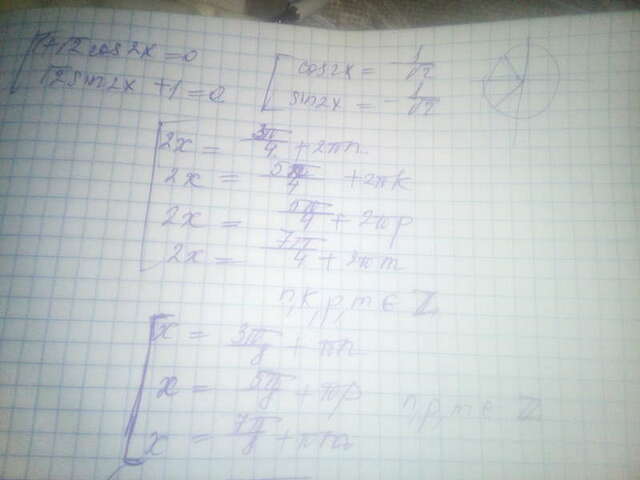 1+√2 cos2x = 0
√2 sin2x + 1 = 0
cos2x = 1/√2
sin2x = -1/√2
2x = 3π/4 + 2πn
2x = 5π/4 + 2πk
2x = 5π/4 + 2πp
2x = 7π/4 + 2πm
n,k,p,m ∈ Z
x = 3π/8 + πn
x = 5π/8 + πp
x = 7π/8 + πm
n,p,m ∈ Z